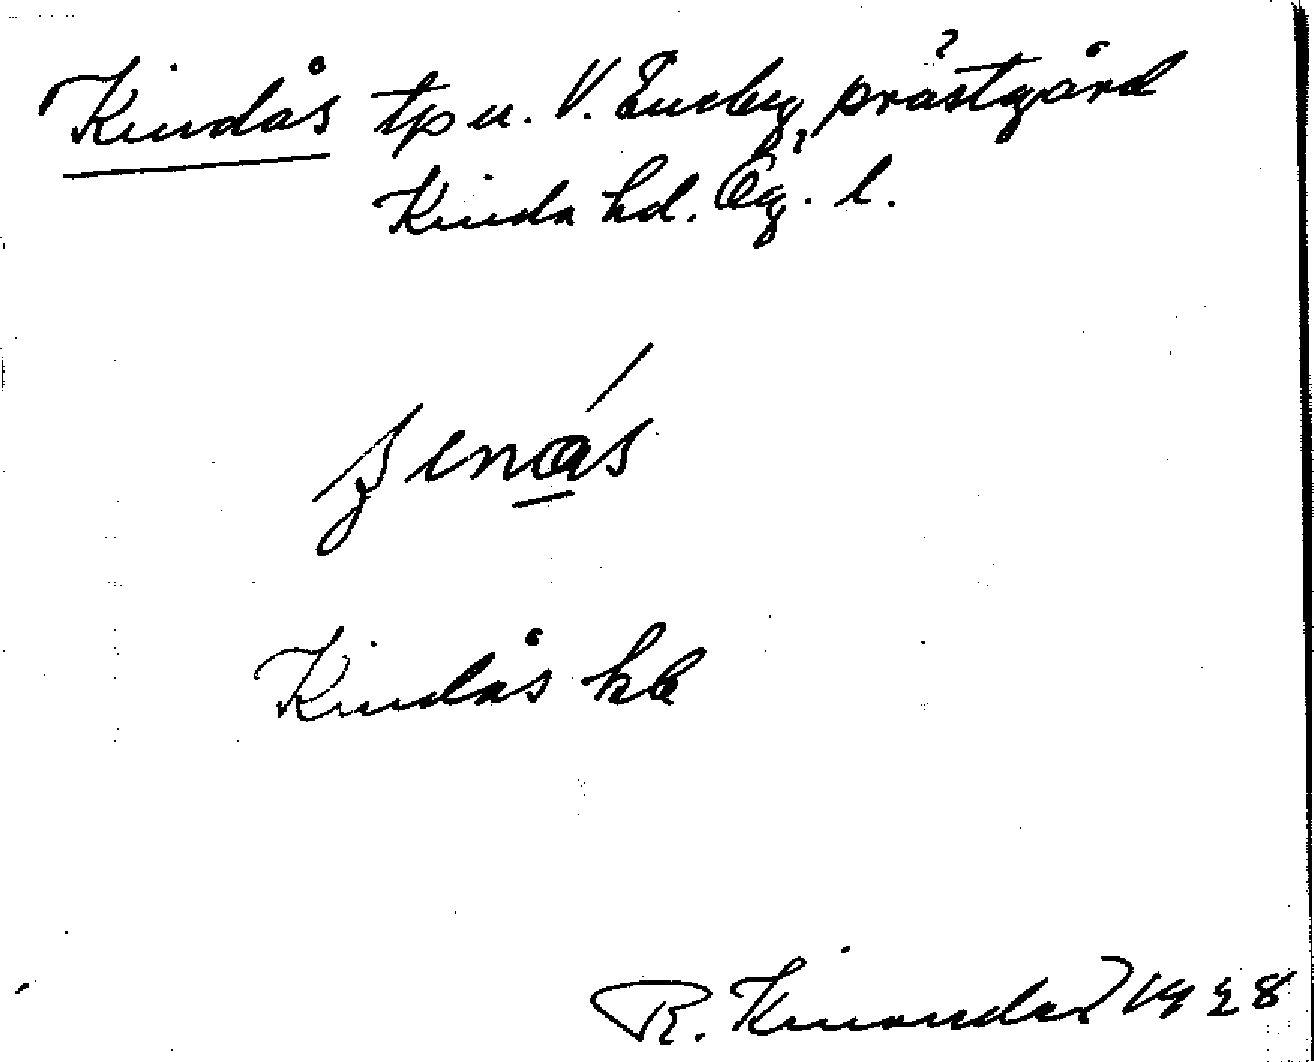 Kindås tp u. V. Eneby prästgård
Kinda hd. Ög. l.
Kindås kb
R. Kinander 1928